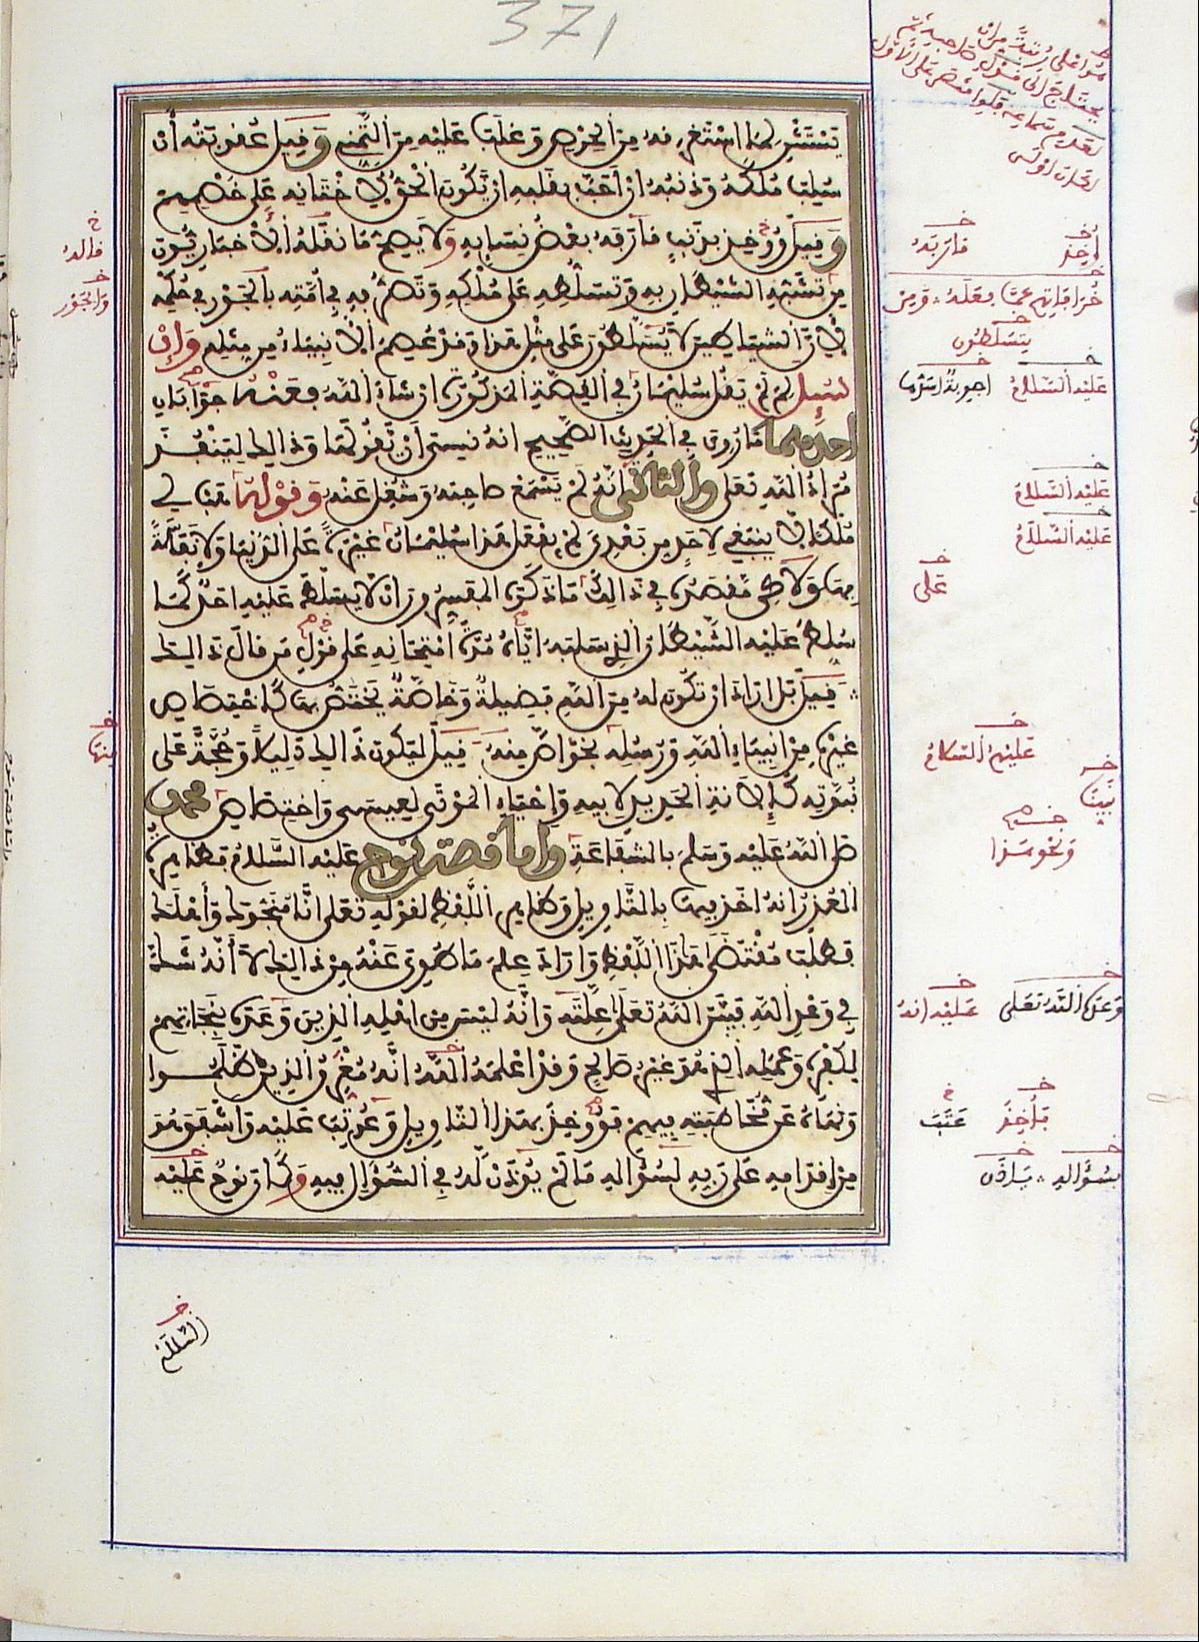 371
يَسْتَثْنِ لما استغرقه من الحرص وغلب عليه من التمني وقيل عقوبته أن
سلب ملكه وذنبه أن أحب بقلبه أن يكون الحق لأختانه على خصمهم
وقيل ووخذ بذنب قارفه بعض نسايه ولا يصح ما نقله الاخباريون
من تشبه الشيطان به وتسلطه على ملكه وتصرفه في أمته بالجور في حكمه
لأن الشياطين لا يسلطون على مثل هذا وقد عصم الأنبياء من مثله وإن
سيل لم لم يقل سليمان في القصة المذكورة إن شاء الله فعنه جوابان
احدهما ما روي في الحديث الصحيح انه نسي أن يقولها وذالك لينفذ
مراد الله تعلى والثاني أنه لم يسمع صاحبه وشغل عنه وقوله هب لي
ملكا لا ينبغي لأحد من بعدي لم يفعل هذا سليمان غيرة على الدنيا ولا نفاسة
بها ولاكن مقصده في ذالك ما ذكره المفسرون أن لا يسلط عليه احد كما
سلط عليه الشيطان الذي سلبه اياه مدة امتحانه على قول من قال ذالك
وقيل بل اراد ان تكون له من الله فضيلة وخاصة يختص بها كاختصاص
غيره من أنبياء الله ورسله بخواص منه وقيل ليكون ذالك دليلا وحجة على
نبوته كإلانة الحديد لأبيه وإحياء الموتى لعيسى واختصاص محمد
صلى الله عليه وسلم بالشفاعة وأما قصة نوح عليه السلام فظاهرة
العذر انه اخذ فيها بالتاويل وظاهر اللفظ لقوله تعلى إنا منجوك وأهلك
فطلب مقتضى هذا اللفظ واراد علم ما طوي عنه من ذالك لا أنه شك
في وعد الله فبين الله تعلى علته وأنه ليس من أهله الذين وعده بنجاتهم
لكفره وعمله الذي هو غير صالح وقد اعلمه الله انه مغرق الذين ظلموا
ونهاه عن مخاطبته فيهم فووخذ بهذا التاويل وعوتب عليه وأشفق هو
من إقدامه على ربه لسؤاله ما لم يؤذن له في السؤال فيه وكان نوح عليه
أوخذ
قاربه
عليه السلام
اجوبة اسدها
يتسلطون
عليه السلام
عليه السلام
على
عليهم السلام
نبينا
ونحو هذا
وعده الله تعلى
عليه انه
فأخذ
عتب
بسؤاله
ياذن
قاله
والجور
منها
السلام